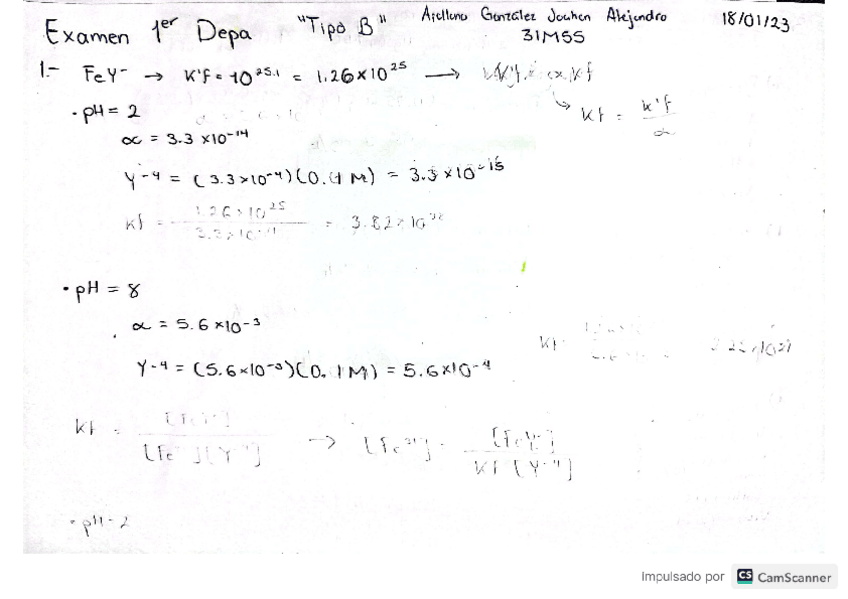 Examen 1er Depa "Tipo B" Arellano González Johan Alejandro 18/01/23
31M55
1.- FeY- → K'f = 10^25.1 = 1.26×10^25 →
Kf = K'f / α
• pH = 2
α = 3.3 ×10^-14
Y-4 = (3.3×10^-4)(0.1 M) = 3.3×10^-15
Kf = 1.26×10^25 / = 3.82×10
• pH = 8
α = 5.6×10^-3
Y-4 = (5.6×10^-3)(0.1M) = 5.6×10^-4
Kf =
Kf = [FeY-] / [Fe ][Y-4] → [Fe ] = [FeY-] / Kf [Y-4]
• pH = 2
Impulsado por CS CamScanner